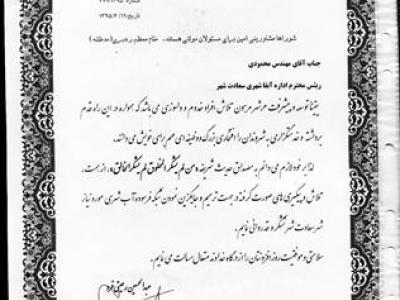 تاریخ: ۱۳۹۵/۴/۱۹
شوراها مشاورینی امین برای مسئولان دولتی هستند. مقام معظم رهبری (مدظله)
جناب آقای مهندس محمودی
رئیس محترم اداره آبفا شهری سعادت شهر
یقیناً توسعه و پیشرفت هر شهر مرهون تلاش افراد خدوم و دلسوزی می باشد که همواره در این راه قدم
برداشته و خدمتگزاری به شهروندان را افتخاری بزرگ و وظیفه ای مهم برای خویش می دانند.
لذا بر خود لازم می دانم به مصداق حدیث شریفه «من لم یشکر المخلوق لم یشکر الخالق»، از زحمت،
تلاش و پیگیری های صورت گرفته در جهت ترمیم و جایگزین نمودن شبکه فرسوده آب شهری مورد نیاز
شهر سعادت شهر تشکر و قدردانی نمایم.
سلامتی و موفقیت روز افزونتان را از درگاه خداوند متعال مسالت می نمایم.
عبدالحسین